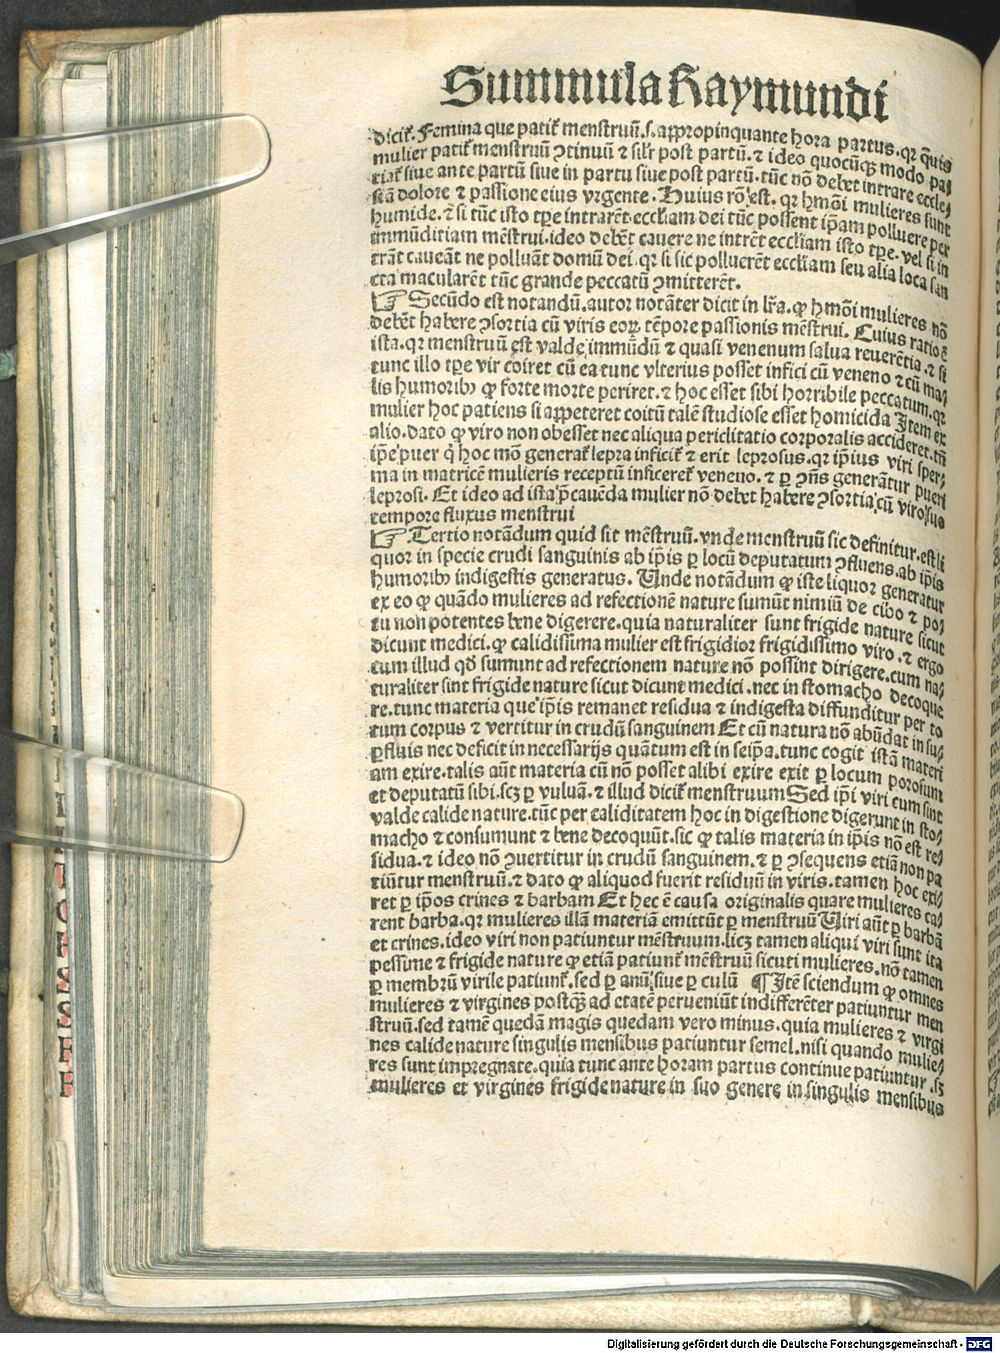 Summula Raymundi
dicit᷑. Femina que patit᷑ menstruū.s.appropinquante hora partus.qꝛ q̄uis
mulier patit᷑ menstruū ↄtinuū ⁊ silr̄ post partū.⁊ ideo quocūqꝫ modo pa⸗
tiat᷑ siue ante partū siue in partu siue post partū.tūc nō debet intrare eccle⸗
siā dolore ⁊ passione eius vrgente. Huius rō est. qꝛ hmōi mulieres sunt
humide.⁊ si tūc isto tp̄e intrarēt eccliam dei tūc possent ip̄am polluere per
immūditiam mēstrui.ideo debēt cauere ne intrēt eccliam isto tp̄e. vel si in
trāt caueāt ne polluāt domū dei.qꝛ si sic polluerēt eccliam seu alia loca san
cta macularēt tūc grande peccatū ↄmitterēt.
☞ Secūdo est notandū.autor notāter dicit in lr̄a.ꝙ hmōi mulieres nō
debēt habere ↄsortia cū viris eoꝝ tēpore passionis mēstrui. Cuius ratio ē
ista.qꝛ menstruū est valde immūdū ⁊ quasi venenum salua reuerētia.⁊ si
tunc illo tp̄e vir coiret cū ea tunc vlterius posset infici cū veneno ⁊ cū ma⸗
lis humoribꝰ ꝙ forte morte periret.⁊ hoc esset sibi horribile peccatum.qꝛ
mulier hoc patiens si appeteret coitū talē studiose esset homicida Item ex
alio.dato ꝙ viro non obesset nec aliqua periclitatio corporalis accideret.tn̄
ip̄e puer q̇ hoc mō generat᷑ lepra inficit᷑ ⁊ erit leprosus.qꝛ ip̄ius viri sper⸗
ma in matricē mulieris receptū inficeret᷑ veneno.⁊ ꝑ ↄn̄s generātur pueri
leprosi. Et ideo ad ista p̄cauēda mulier nō debet habere ↄsortia cū viro suo
tempore fluxus menstrui
☞ Tertio notādum quid sit mēstruū.vnde menstruū sic definitur.est li
quor in specie crudi sanguinis ab ip̄is ꝑ locū deputatum ↄfluens.ab ip̄is
humoribꝰ indigestis generatus. Unde notādum ꝙ iste liquor generatur
ex eo ꝙ quādo mulieres ad refectionē nature sumūt nimiū de cibo ⁊ po⸗
tu non potentes bene digerere.quia naturaliter sunt frigide nature sicut
dicunt medici.ꝙ calidissima mulier est frigidior frigidissimo viro.⁊ ergo
cum illud qd̄ sumunt ad refectionem nature nō possint dirigere.cum na⸗
turaliter sint frigide nature sicut dicunt medici.nec in stomacho decoque
re.tunc materia que ip̄is remanet residua ⁊ indigesta diffunditur per to
tum corpus ⁊ vertitur in crudū sanguinem Et cū natura nō abūdat in su⸗
ꝑfluis nec deficit in necessarijs quātum est in seip̄a.tunc cogit istā materi
am exire.talis aūt materia cū nō posset alibi exire exit ꝑ locum porosum
et deputatū sibi.scꝫ ꝑ vuluā.⁊ illud dicit᷑ menstruum Sed ip̄i viri cum sint
valde calide nature.tūc per caliditatem hoc in digestione digerunt in sto⸗
macho ⁊ consumunt ⁊ bene decoquūt.sic ꝙ talis materia in ip̄is nō est re⸗
sidua.⁊ ideo nō ↄuertitur in crudū sanguinem.⁊ ꝑ ↄsequens etiā non pa
tiūtur menstruū.⁊ dato ꝙ aliquod fuerit residuū in viris.tamen hoc exi⸗
ret ꝑ ip̄os crines ⁊ barbam Et hec ē causa originalis quare mulieres ca⸗
rent barba.qꝛ mulieres illā materiā emittūt ꝑ menstruū Uiri aūt ꝑ barbā
et crines.ideo viri non patiuntur mēstruum.licꝫ tamen aliqui viri sunt ita
pessime ⁊ frigide nature ꝙ etiā patiunt᷑ mēstruū sicuti mulieres.nō tamen
ꝑ membrū virile patiunt᷑.sed ꝑ anū siue ꝑ culū ¶ Itē sciendum ꝙ omnes
mulieres ⁊ virgines postqꝫ ad etatē perueniūt indifferēter patiuntur men
struū.sed tamē quedā magis quedam vero minus.quia mulieres ⁊ virgi
nes calide nature singulis mensibus patiuntur semel.nisi quando mulie⸗
res sunt impregnate.quia tunc ante horam partus continue patiuntur.sꝫ
mulieres et virgines frigide nature in suo genere in singulis mensibus
Digitalisierung gefördert durch die Deutsche Forschungsgemeinschaft - DFG